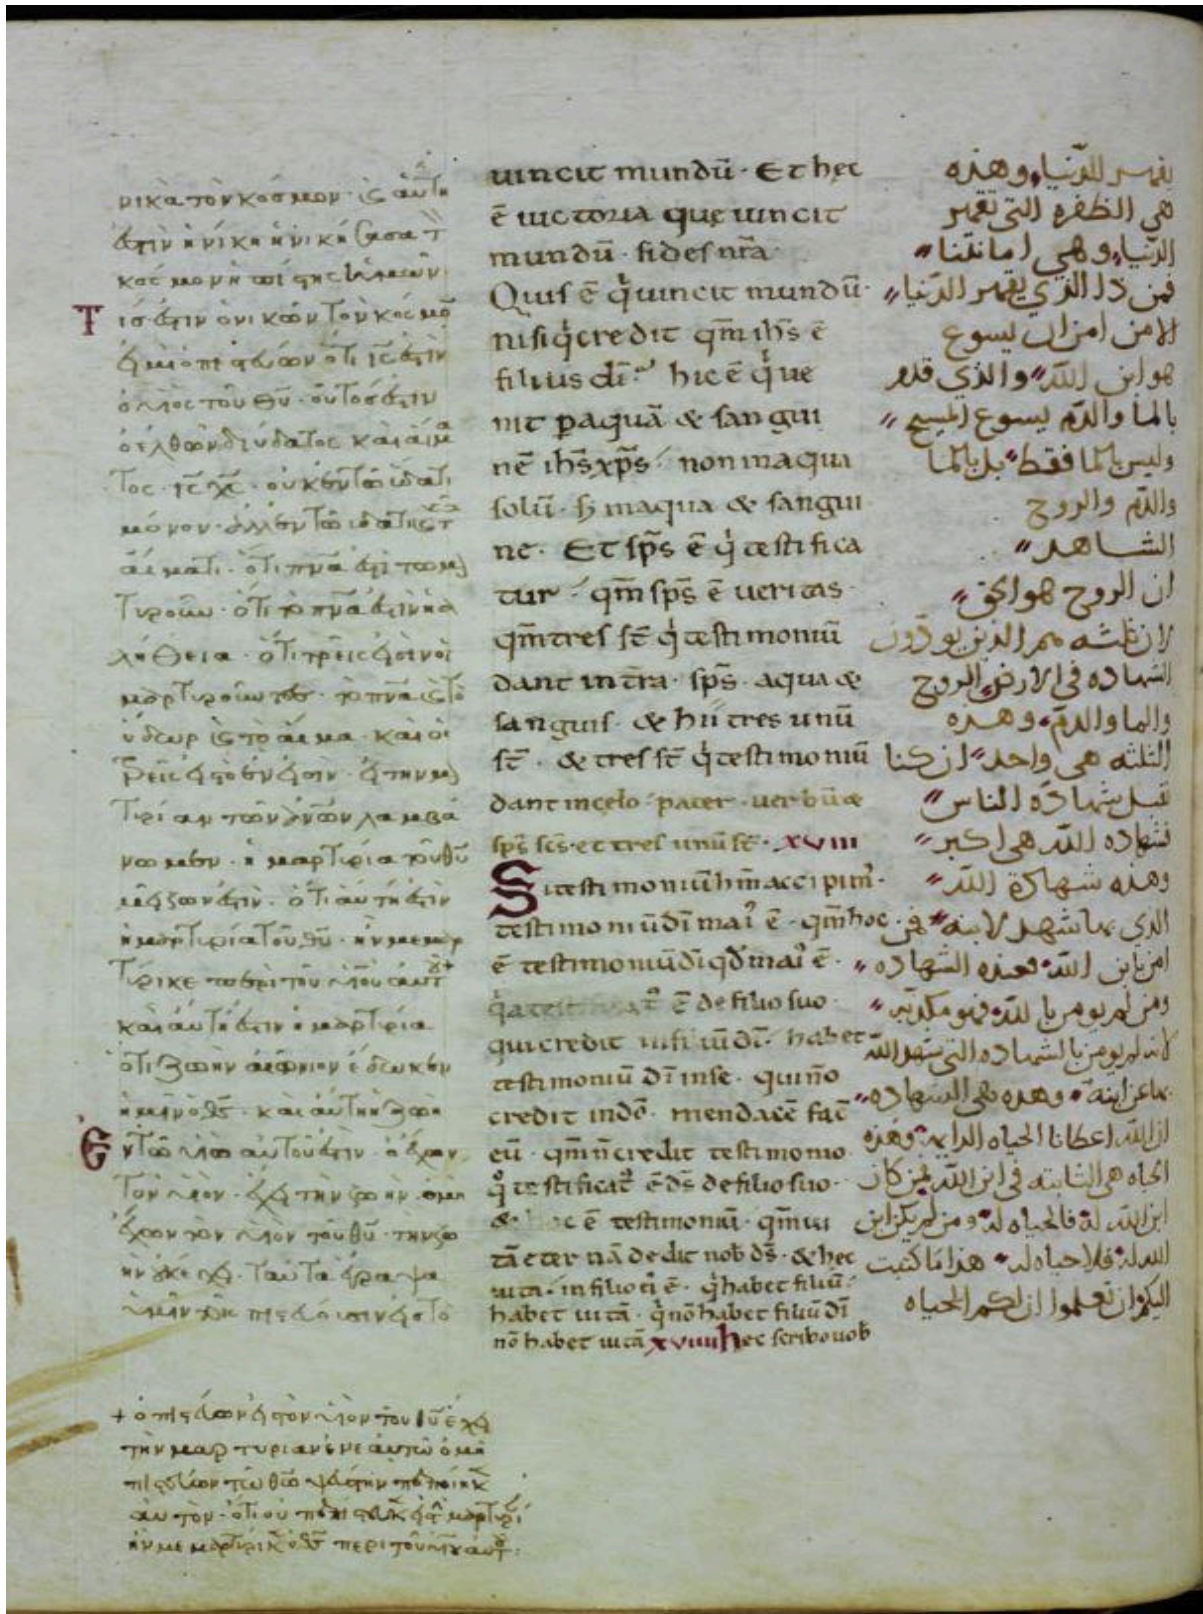 νικὰ τὸν κόσμον · κς αὕτη
ἐστὶν ἡ νίκη ἡ νικήσασα τ
κόσμον ἡ πίστης ὑμῶν
Τίς ἐστιν ὁ νικῶν τὸν κόσμο
ἐμὶ ὁ πιστεύων ὅτι ις ἐστὶν
ὁ υιος τοῦ θυ · οὗτος ἐστιν
ὁ ἐλθὼν δι ὕδατος καὶ αἵμα
τος · ις χς · οὐκ ἐν τῶ ὕδατι
μόνον · ἀλλ ἐν τῶ ὕδατι κς τ
αἵματι · ὅτι πνα ἐστι τὸ μαρ
τυροῦν · ὅτι τὸ πνα ἐστιν ἡ ἀ
λήθεια · ὅτι τρεῖς εἰσιν οἱ
μαρτυροῦντες · τὸ πνα κς τὸ
ὕδωρ κς τὸ αἵμα · καὶ οἱ
τρεῖς εἰς τὸ ἕν εἰσιν · εἰ τὴν μαρ
τυρίαν τῶν ἀνῶν λαμβά
νωμεν · ἡ μαρτιρία τοῦ θυ
μείζων ἐστιν · ὅτι αὕτη ἐστιν
ἡ μαρτιρία τοῦ θυ · ἣν μεμαρ
τίρικε περὶ τοῦ υιοῦ αὐτοῦ +
καὶ αὕτη ἐστιν ἡ μαρτιρία
ὅτι ζωὴν αἰώνιον ἔδωκεν
ἡμῖν ὁ θς · καὶ αὕτη ἡ ζωὴ
Εν τῶ υιῶ αὐτοῦ ἐστιν · ὁ ἔχων
τὸν υιον · ἔχει τὴν ζωὴν · ὁ μὴ
ἔχων τὸν υιὸν τοῦ θυ · τὴν ζω
ὴν οὐκ ἔχει · ταῦτα ἔγραψα
ὑμῖν τοῖς πιστεύουσιν εἰς τὸ
+ ὁ πιστεύων εἰς τὸν υιὸν τοῦ θυ ἔχει
τὴν μαρτυρίαν ἐν ἑαυτῶ ὁ μὴ
πιστεύων τῶ θῶ ψεύστην πεποίηκ
αὐτὸν · ὅτι οὐ πεπίστευκ εἰς τ μαρτυρί
ἣν μεμαρτύρικ ὁ θς περὶ τοῦ υιου αὐτοῦ ·
uincit mundū · Et hęc
ē uictoria quę uincit
mundū · fides nr̄a ·
Quis ē q̇ uincit mundū ·
nisi q̇ credit qm̄ ihs̄ ē
filius dī · hic ē q̇ ue
nit ꝑ aquā & sangui
nē ihs̄ xp̄s · non in aqua
solū · s; in aqua & sangui
ne · Et sp̄s ē q̇ testifica
tur · qm̄ sp̄s ē ueritas ·
qm̄ tres st̄ q̇ testimoniū
dant in tr̄a · sp̄s · aqua &
sanguis · & hii tres unū
st̄ · & tres st̄ q̇ testimoniū
dant in cęlo · pater · uerbū &
sp̄s sc̄s · et tres unū st̄ · xviii
Si testimoniū hōm accipim᷒ ·
testimoniū dī mai᷒ ē · qm̄ hoc
ē testimoniū dī qd̄ mai᷒ ē ·
ē de filio suo ·
qui credit in filiū dī · habet
testimoniū dī in se · qui nō
credit in dō · mendacē fac̄
eū · qm̄ n̄ credit testimonio
q̊ testificat᷒ ē ds̄ de filio suo ·
& hoc ē testimoniū · qm̄ ui
tā eternā dedit nob̄ ds̄ · & hęc
uita · in filio ei᷒ ē · q̇ habet filiū ·
habet uitā · q̇ nō habet filiū dī
nō habet uitā xviiii hec scribo uob̄
يقهر للدنيا وهذه
هي الظفره التي تقهر
الدنيا وهي امانتنا
فمن ذا الذي يقهر الدنيا
الا من امن ان يسوع
هو ابن الله والذي قدم
بالما والدم يسوع المسيح
وليس بالما فقط بل بالما
والدم والروح
الشاهد
ان الروح هو الحق
لان ثلثه هم الذين يودون
الشهاده في الارض الروح
والما والدم وهذه
الثلثه هي واحد ان كنا
نقبل شهادة الناس
فشهاده الله هي اكبر
وهذه شهادة الله
الذي بها شهد لابنه فمن
امن بابن الله فعنده الشهاده
ومن لم يومن بالله فهو مكذبه
لانه لم يومن بالشهاده التي شهد الله
بها عن ابنه وهذه هي الشهاده
ان الله اعطانا الحياه الدايمه وهذه
الحياه هي الثابته في ابن الله فمن كان
ابن الله له فالحياه له ومن لم يكن ابن
الله له فلا حياه له هذا ما كتبت
اليكم وان تعلموا ان لكم الحياه